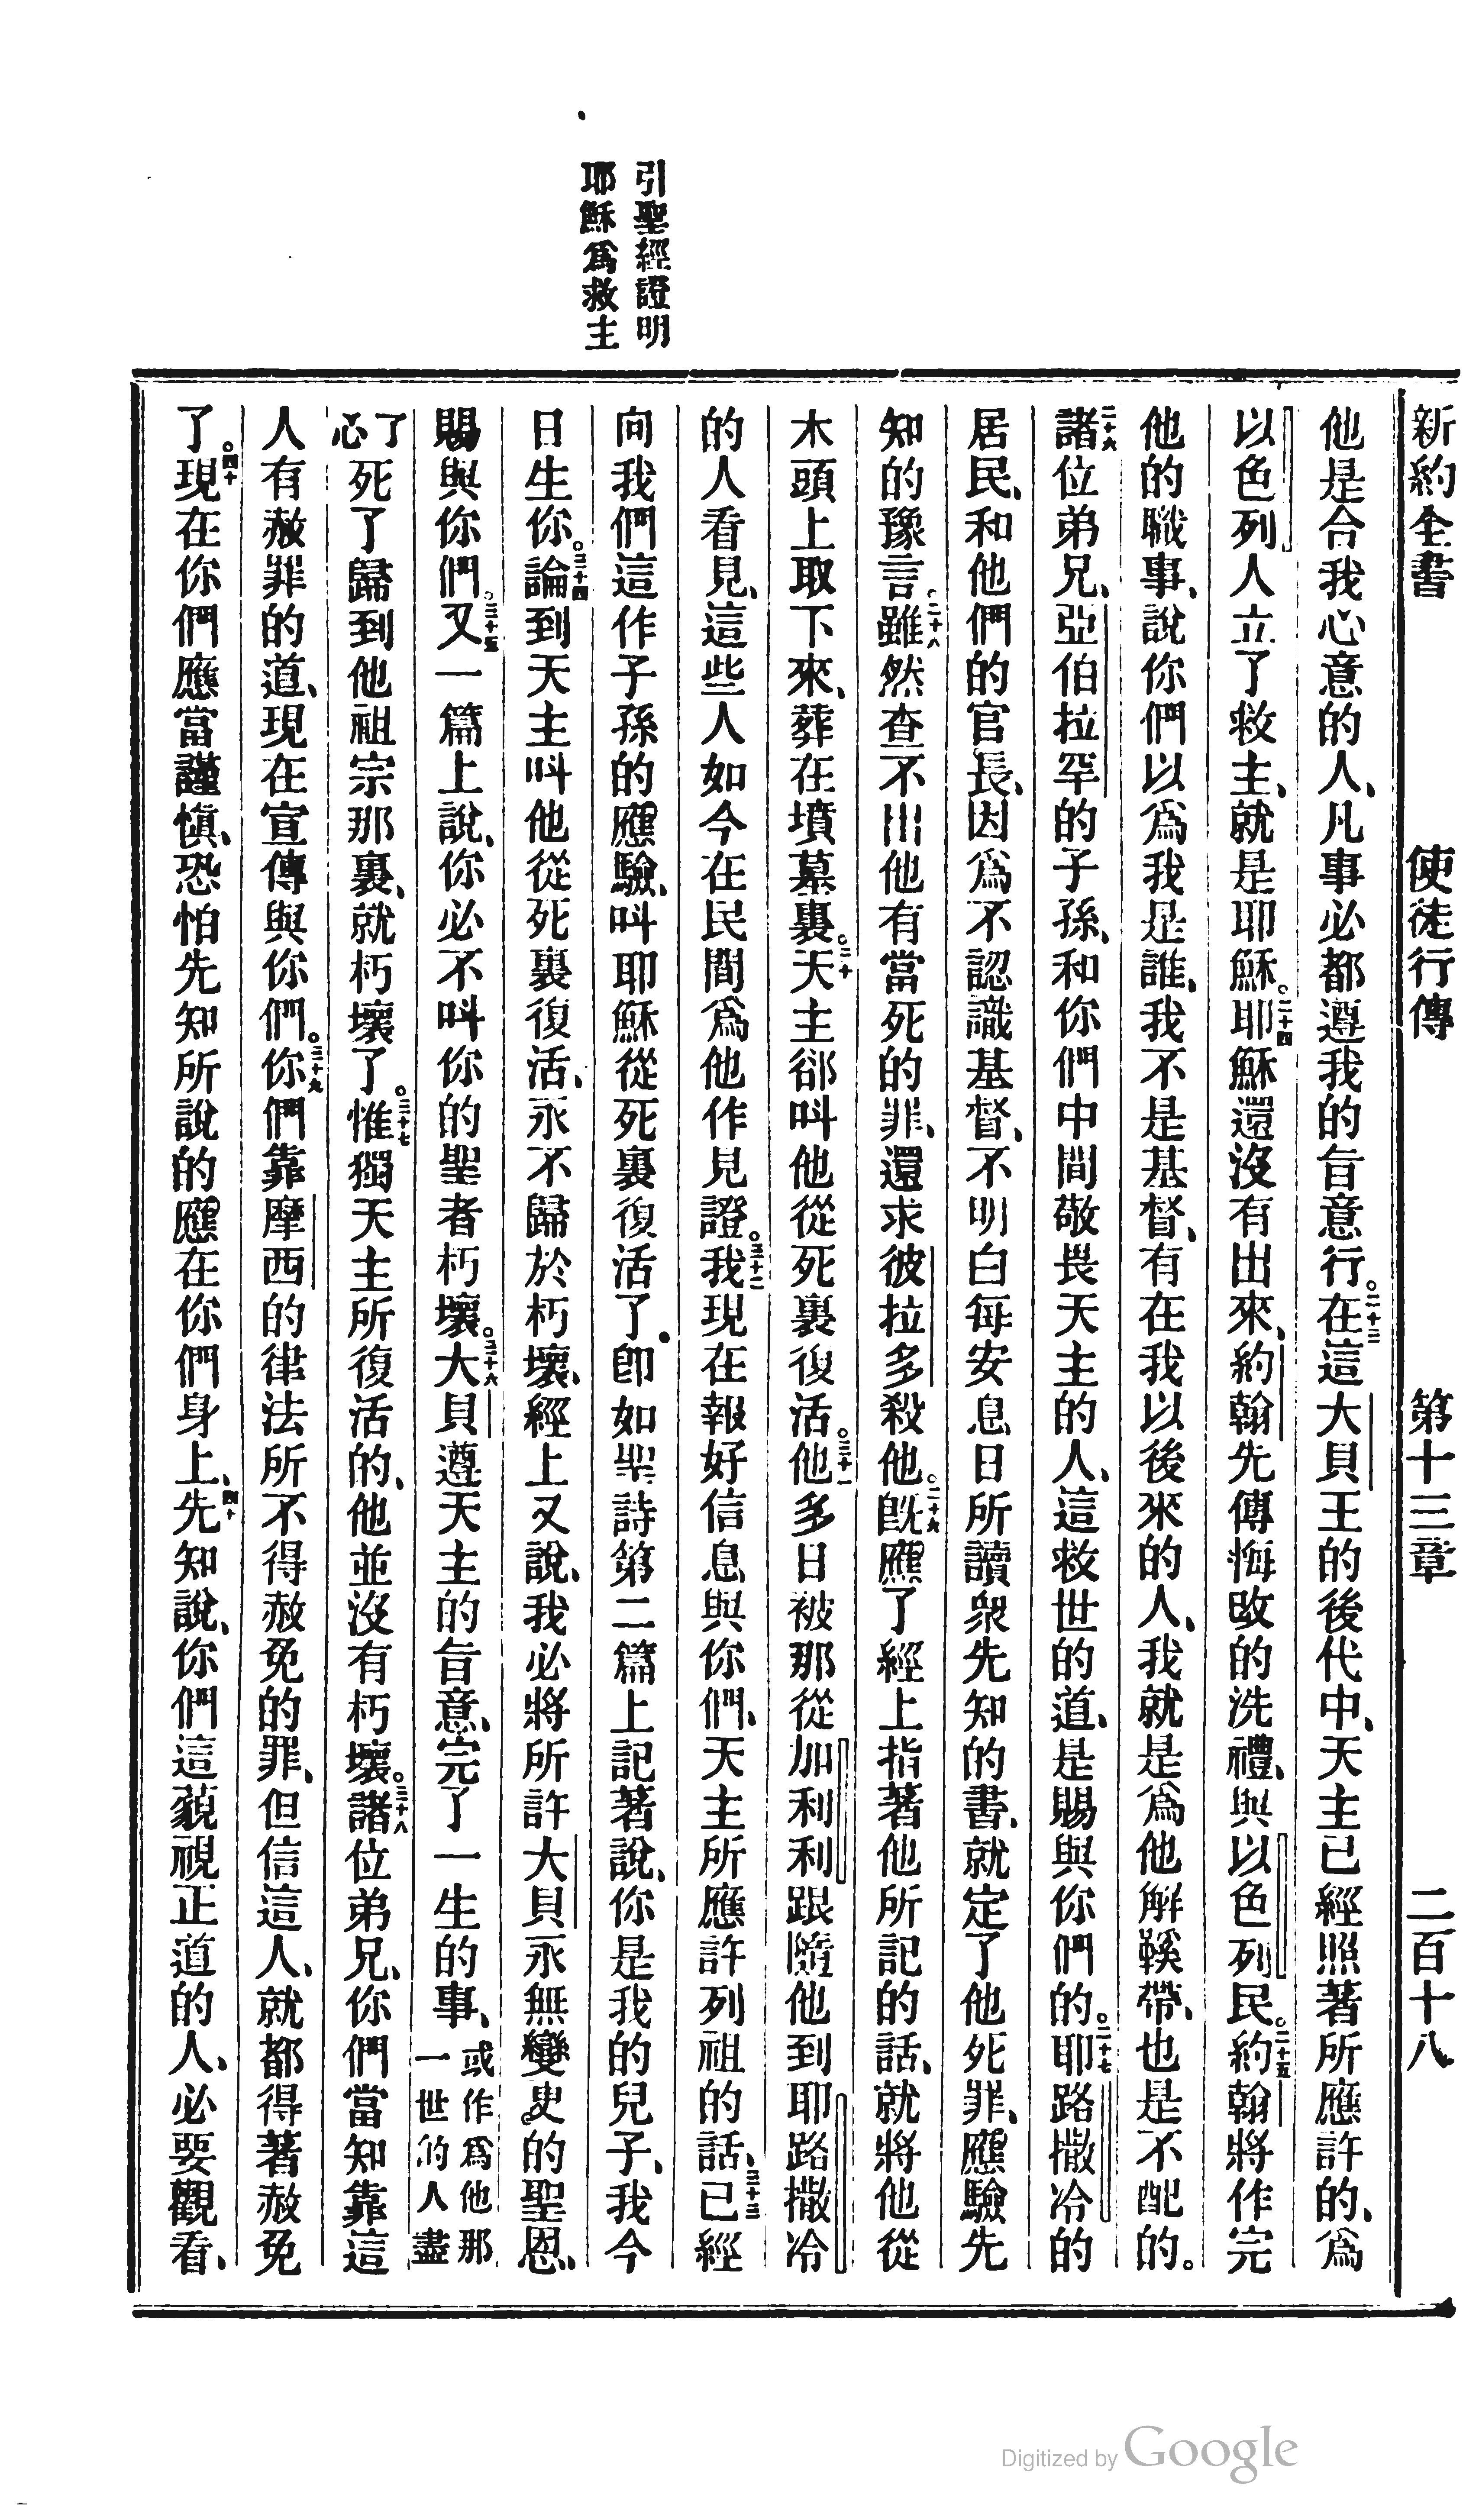 新約全書 使徒行傳 第十三章 二百十八
引聖經證明
耶穌爲救主
他是合我心意的人、凡事必都遵我的旨意行。二十三在這大貝王的後代中、天主已經照著所應許的、爲
以色列人立了救主、就是耶穌。二十四耶穌還沒有出來、約翰先傳悔改的洗禮、與以色列民。二十五約翰將作完
他的職事、說你們以爲我是誰、我不是基督、有在我以後來的人、我就是爲他解鞵帶、也是不配的。
二十六諸位弟兄、亞伯拉罕的子孫、和你們中間敬畏天主的人、這救世的道、是賜與你們的。二十七耶路撒冷的
居民、和他們的官長、因爲不認識基督、不明白每安息日所讀衆先知的書、就定了他死罪、應驗先
知的豫言。二十八雖然查不出他有當死的罪、還求彼拉多殺他。二十九旣應了經上指著他所記的話、就將他從
木頭上取下來、葬在墳墓裏。三十天主郤呌他從死裏復活。三十一他多日被那從加利利跟隨他到耶路撒冷
的人看見、這些人如今在民間爲他作見證。三十二我現在報好信息與你們、天主所應許列祖的話、三十三已經
向我們這作子孫的應驗、呌耶穌從死裏復活了。卽如聖詩第二篇上記著說、你是我的兒子、我今
日生你。三十四論到天主呌他從死裏復活、永不歸於朽壞、經上又說、我必將所許大貝永無變更的聖恩、
賜與你們。三十五又一篇上說、你必不呌你的聖者朽壞。三十六大貝遵天主的旨意、完了一生的事、或作爲他那一世的人盡
了心死了歸到他祖宗那裏、就朽壞了。三十七惟獨天主所復活的、他並沒有朽壞。三十八諸位弟兄、你們當知靠這
人有赦罪的道、現在宣傳與你們。三十九你們靠摩西的律法所不得赦免的罪、但信這人、就都得著赦免
了。四十現在你們應當謹愼、恐怕先知所說的應在你們身上、先知說、你們這藐視正道的人、必要觀看、
Digitized by Google